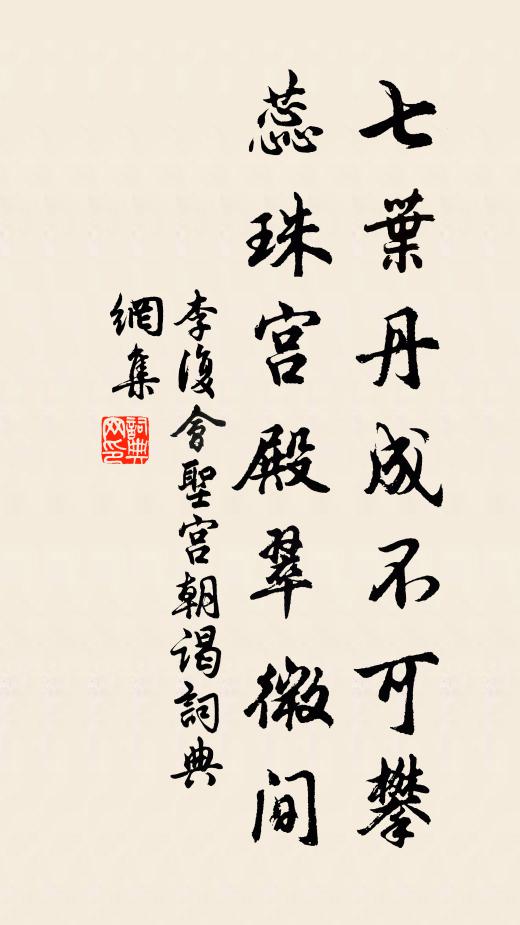 七葉丹成不可攀
蕊珠宫殿翠微间
李復會聖宮朝謁詞典
網集
詞典網印